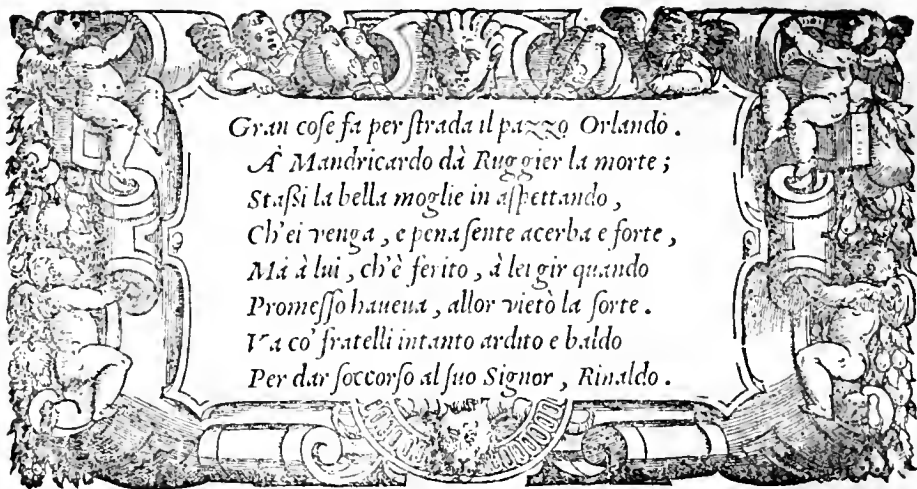 Gran coſe fa per ſtrada il pazzo Orlando.
À Mandricardo dà Ruggier la morte;
Staſsi la bella moglie in aſpettando,
Ch'ei venga, e pena ſente acerba e forte,
Mà à lui, ch'è ferito, à lei gir quando
Promeſſo haueua, allor vietò la ſorte.
Va co' fratelli intanto ardito e baldo
Per dar ſoccorſo al ſuo Signor, Rinaldo.